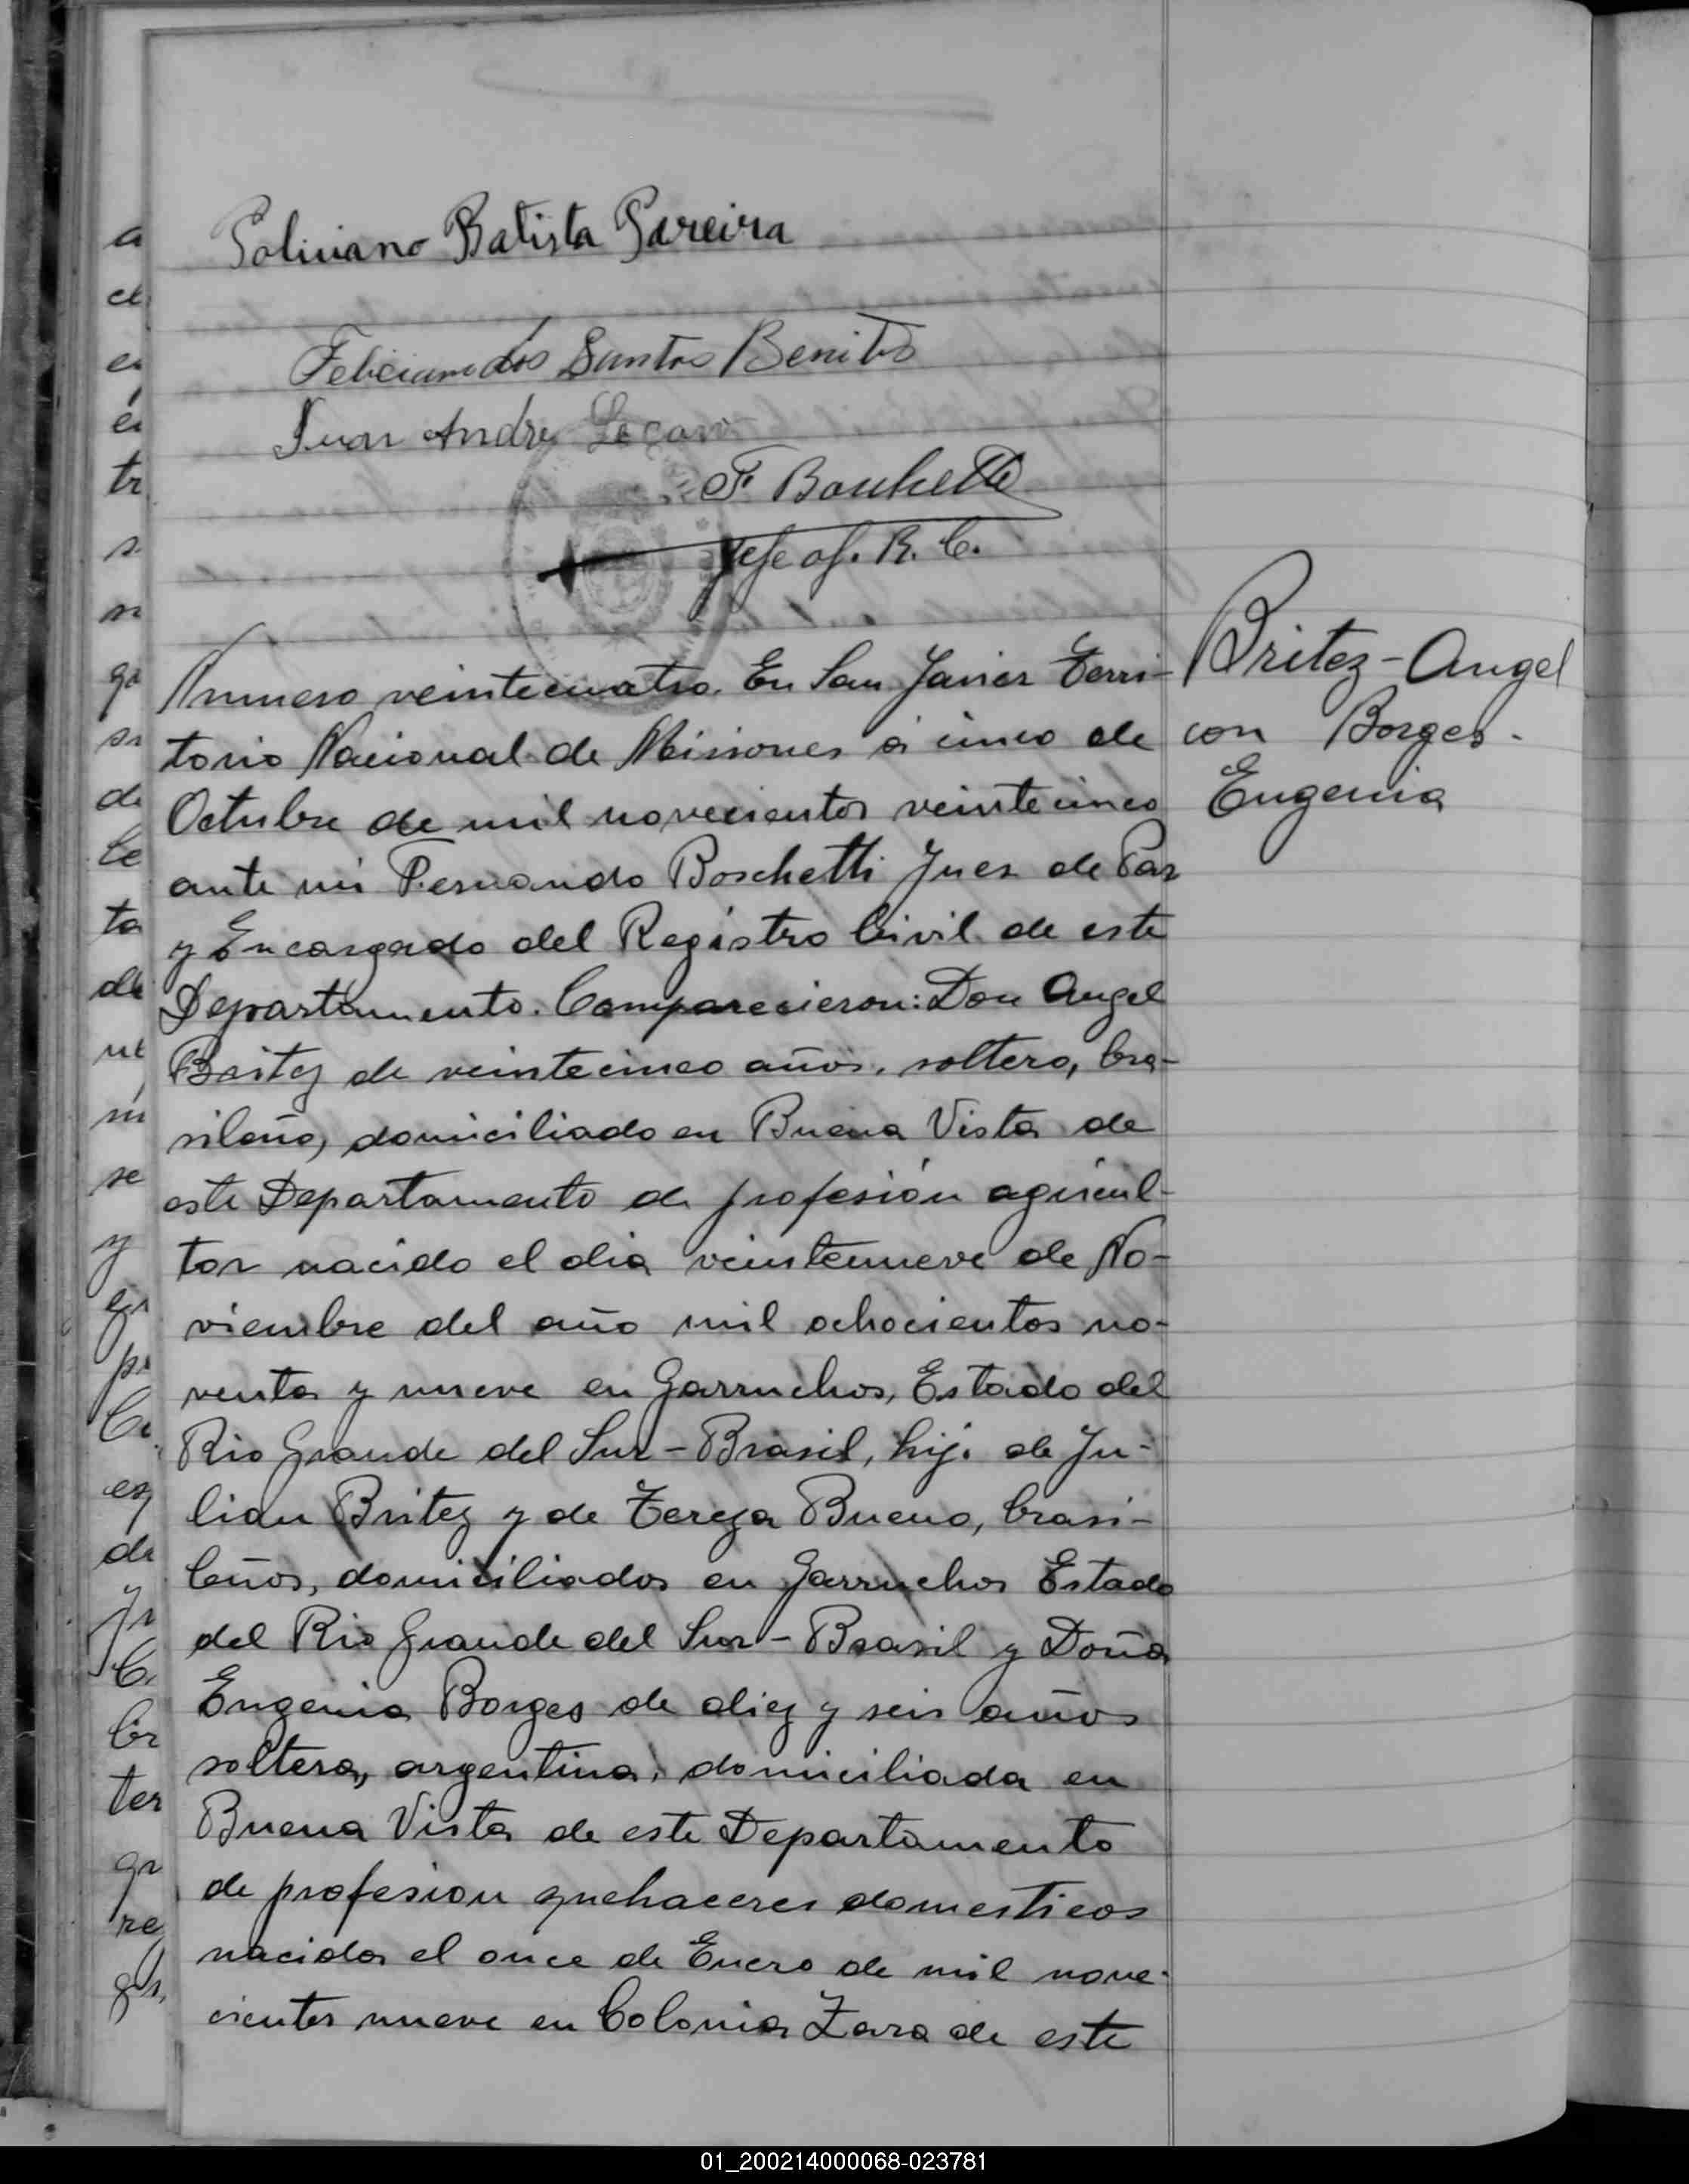 Batista Pareira
Feliciano dos Santos Benites
Juan Andres
F. Boschetti
Jefe of. R. C.
Britez - Angel
con Borges.
Eugenia
Numero veintecuatro. En San Javier Terri-
torio Nacional de Misiones á cinco de
Octubre de mil novecientos veintecinco
ante mi Fernando Boschetti Juez de Paz
y Encargado del Registro Civil de este
Departamento. Comparecieron: Don Angel
Britez de veintecinco años, soltero, bra-
sileño, domiciliado en Buena Vista de
este Departamento de profesión agricul-
tor nacido el dia veintenueve de No-
viembre del año mil ochocientos no-
venta y nueve en Garruchos, Estado del
Rio Grande del Sur - Brasil, hijo de Ju-
lian Britez y de Tereza Bueno, brasi-
leños, domiciliados en Garruchos Estado
del Rio Grande del Sur - Brasil y Doña
Eugenia Borges de diez y seis años
soltera, argentina, domiciliada en
Buena Vista de este Departamento
de profesion quehaceres domesticos
nacida el once de Enero de mil nove-
cientos nueve en Colonia Zara de este
a
el
tr
s.
de
le
ta
de
se
y
es
de
ter
re
01_200214000068-023781